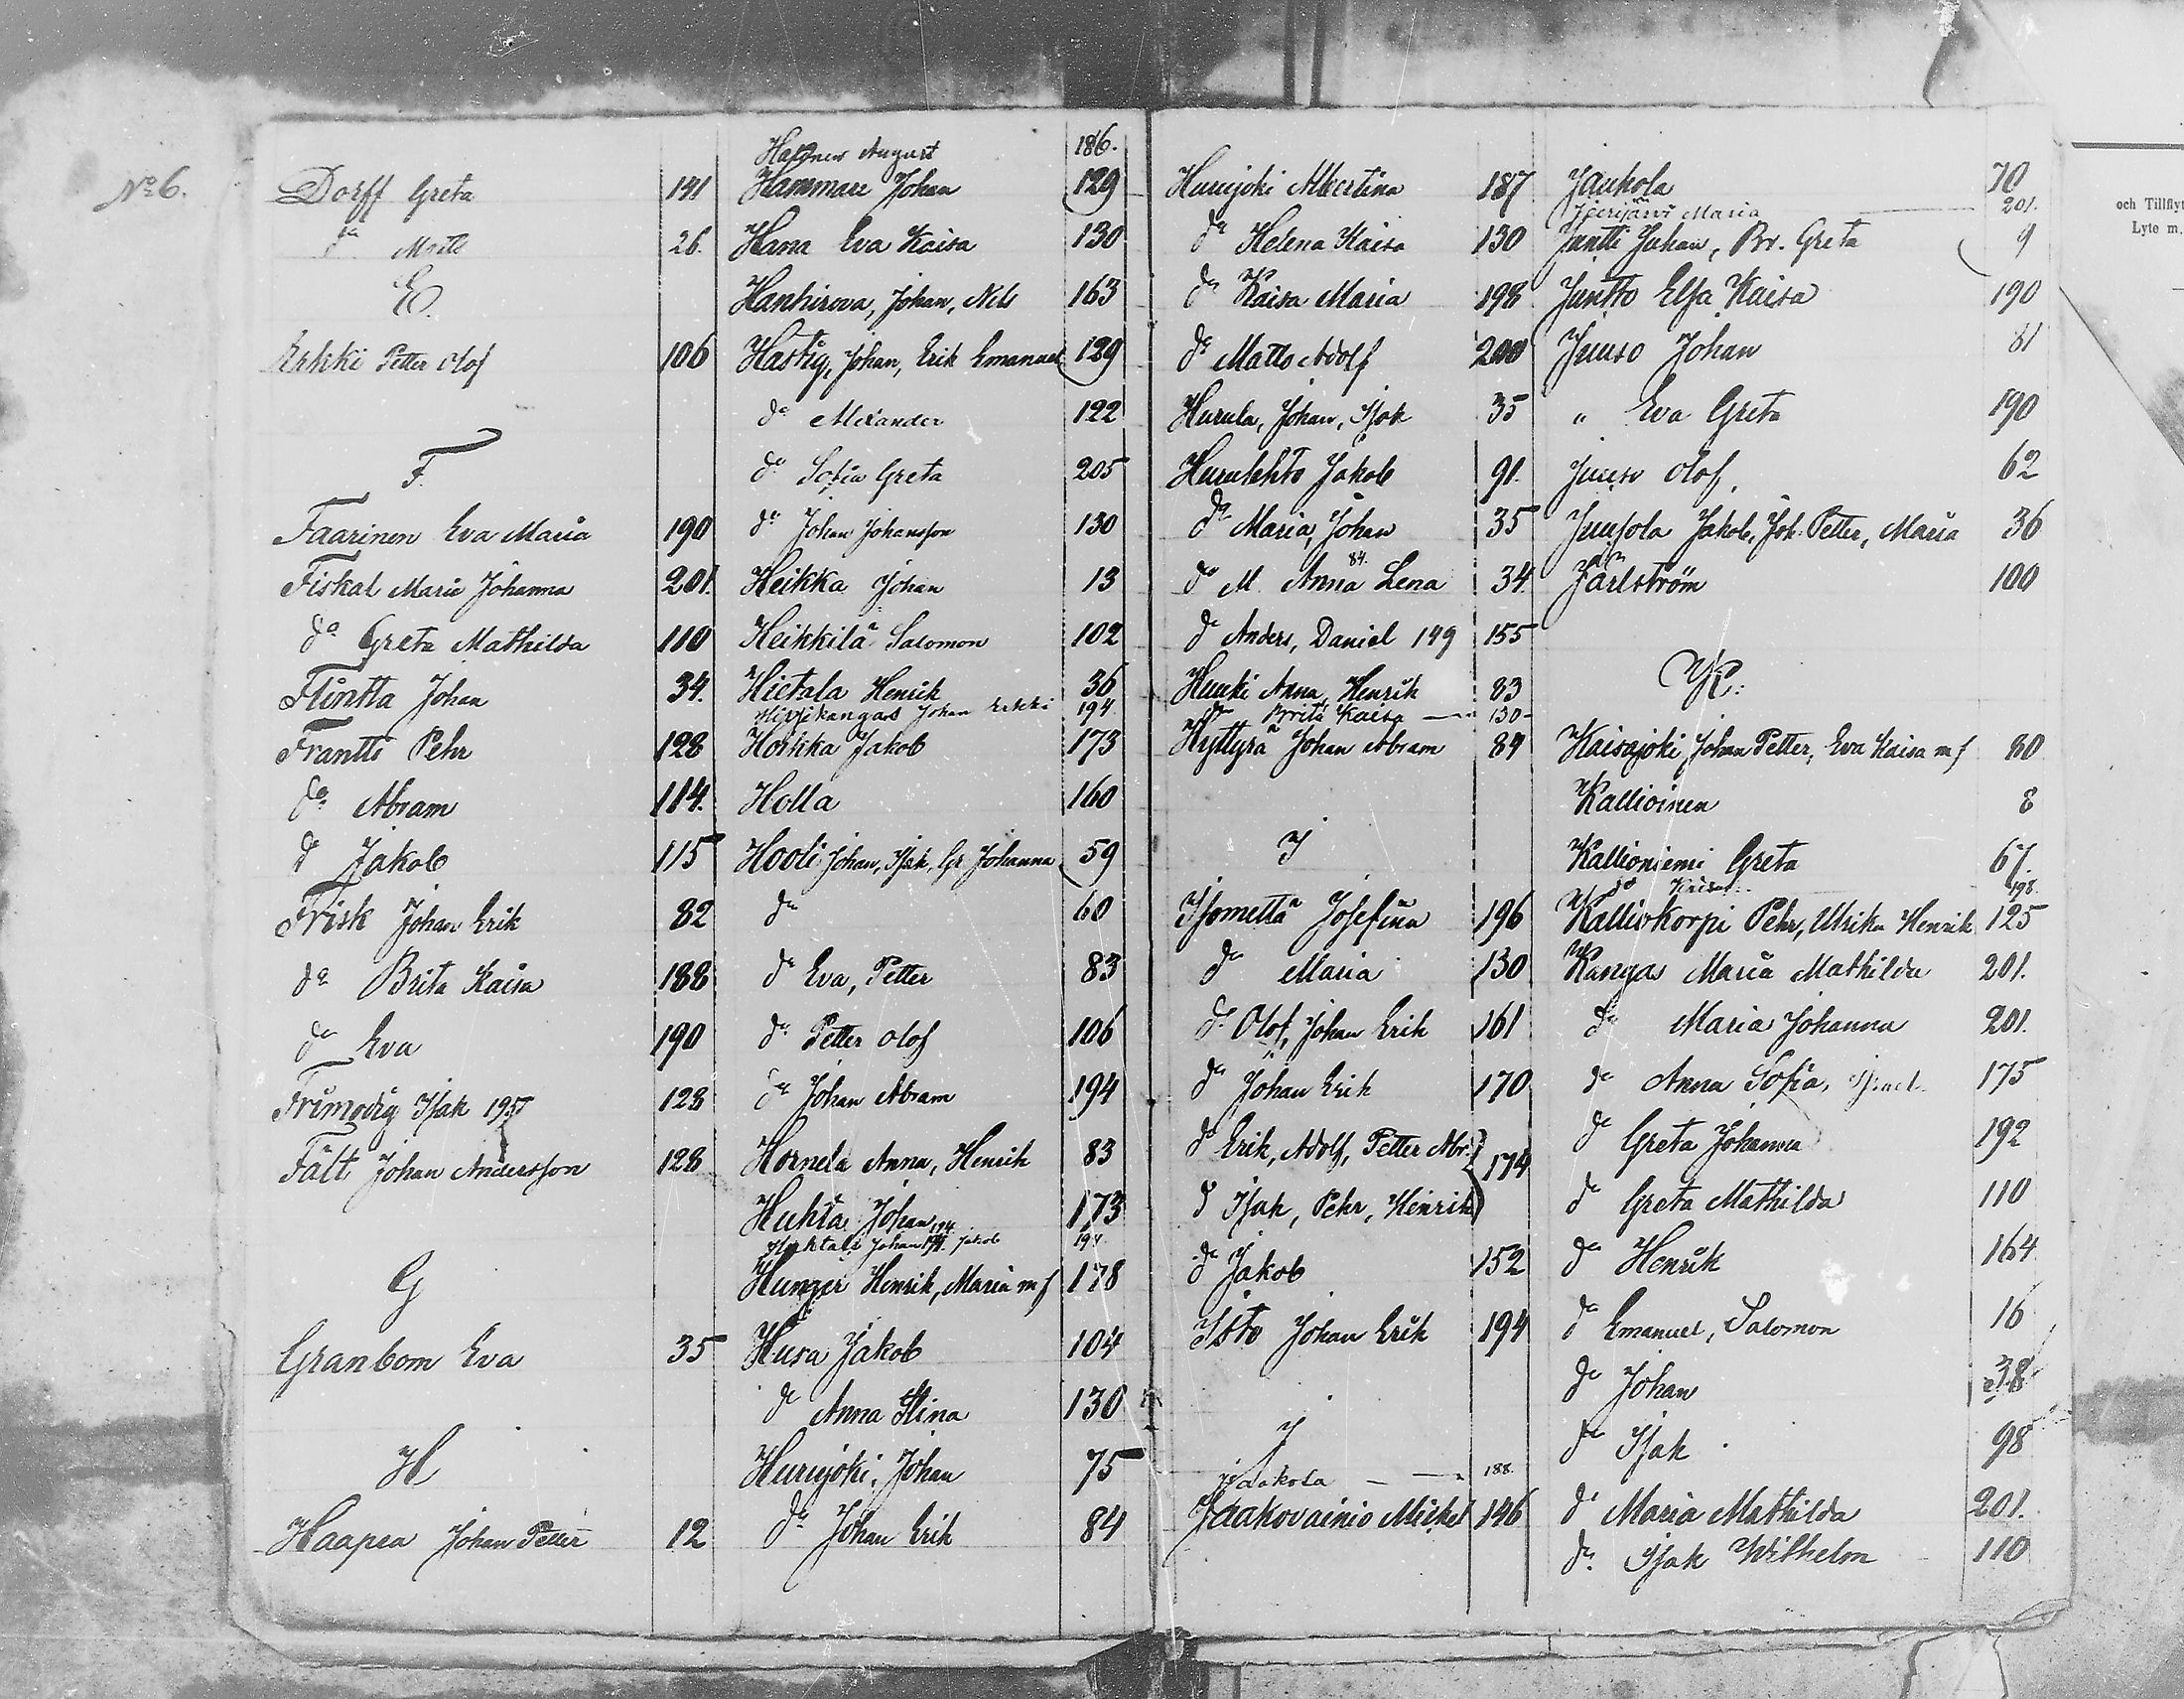 No 6.
Dorff Greta 191
do Matts 26.
E.
Erkki Petter Olof 106
F.
Faarinen Eva Maria 190
Fiskal Maria Johanna 201.
do Greta Mathilda 110
Flinktta Johan 34.
Frantti Pehr 128
do Abram 114.
d Jakob 115
Frisk Johan Erik 82
do Brita Kaisa 188
do Eva 190
Frimodig Isak 195 128
Fält Johan Andersson 128
G
Granbom Eva 35
H
Haapea Johan Petter 12
August 186.
Hammare Johan 129
Hana Eva Kaisa 130
Hanhirova, Johan, Nils 163
Hastig, Johan, Erik Emanuel 129
do Alexander 122
do Sofia Greta 205
do Johan Johansson 130
Heikka Johan 13
Heikkilä Salomon 102
Hietala Henrik 36
Hirsikangas Johan Erkki 194
Horkka Jakob 173
Holla 160
Hooli Johan, Isak, Gr Johanna 59
do 60
do Eva, Petter 83
do Petter Olof 106
do Johan Abram 194
Hornela Anna, Henrik 83
Huhta Johan 173
Johan 194. Jakob 194
Hunger Henrik, Maria m f 178
Husa Jakob 104
do Anna Stina 130
Huruijoki, Johan 75
do Johan Erik 84
Huruijoki Albertina 187
do Helena Kaisa 130
do Kaisa Maria 198
do Matts Adolf 200
Hurula, Johan, Isak 35
Hurulehto Jakob 91.
do Maria, Johan 35
84.
do M. Anna Lena 34.
do Anders, Daniel 149 155
Huuki Anna, Henrik 83
do Brita Kaisa 130
Hyttyrä Johan Abram 84
I
Isomettä Josefina 196
do Maria 130
do Olof, Johan Erik 161
do Johan Erik 170
do Erik, Adolf, Petter Abr. 174
d Isak, Pehr, Henrik
do Jakob 152
Isto Johan Erik 194
J
Jaakola 188.
Jaakovainio Mickel 146
Jaukola 70
Jierijärvi Maria 201.
Juntti Johan, Br. Greta 9
Juntto Elsa Kaisa 190
Juuso Johan 81
" Eva Greta 190
Juuso Olof, 62
Juusola Jakob, Joh. Petter, Maria 36
Järlström 100
K.
Kaisajoki Johan Petter, Eva Kaisa m f 80
Kallioinen 8
Kallioniemi Greta 67.
do Kaisa 198.
Kalliokorpi Pehr, Ulrika Henrik 125
Kangas Maria Mathilda 201.
do Maria Johanna 201.
do Anna Sofia, Israel 175
do Greta Johanna 192
do Greta Mathilda 110
do Henrik 164
do Emanuel, Salomon 16
do Johan 38
do Isak 98
do Maria Mathilda 201.
do Isak Wilhelm 110
och Tillflyt
Lyte m.